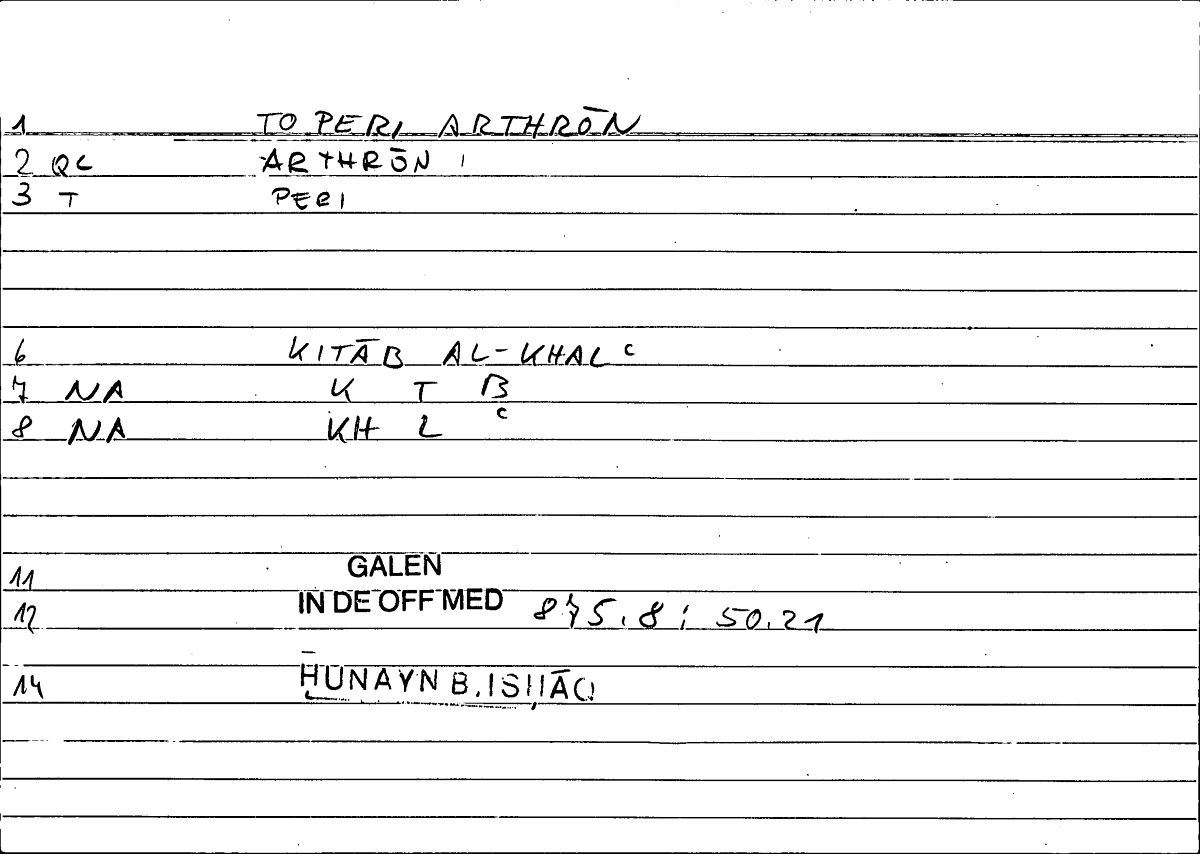 1 TO PERI ARTHRŌN
2 QC ARTHRŌN
3 T PERI
6 KITĀB AL-KHALᶜ
7 NA K T B
8 NA KH L ᶜ
11 GALEN
12 IN DE OFF MED 875.8 ; 50.21
14 ḤUNAYN B. ISḤĀQ